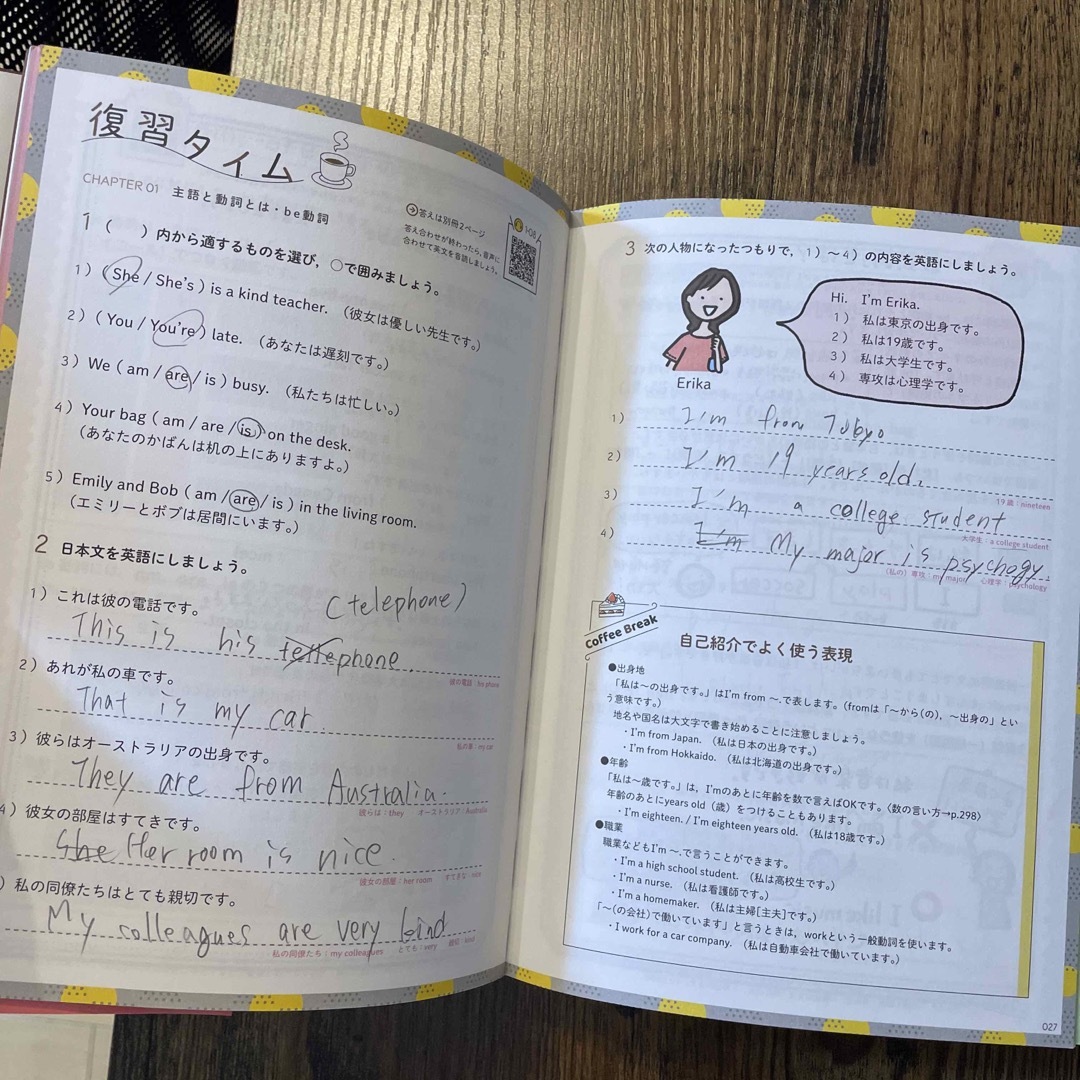 復習タイム
CHAPTER 01 主語と動詞とは・be動詞
答えは別冊2ページ
答え合わせが終わったら,音声に
合わせて英文を音読しましょう。
1-08
1 ( )内から適するものを選び,○で囲みましょう。
1) ( She / She's ) is a kind teacher. (彼女は優しい先生です。)
2) ( You / You're ) late. (あなたは遅刻です。)
3) We ( am / are / is ) busy. (私たちは忙しい。)
4) Your bag ( am / are / is ) on the desk.
(あなたのかばんは机の上にありますよ。)
5) Emily and Bob ( am / are / is ) in the living room.
(エミリーとボブは居間にいます。)
2 日本文を英語にしましょう。
1) これは彼の電話です。
(telephone)
This is his phone.
彼の電話:his phone
2) あれが私の車です。
That is my car
私の車:my car
3) 彼らはオーストラリアの出身です。
They are from Australia.
彼らは:they オーストラリア:Australia
4) 彼女の部屋はすてきです。
She Her room is nice.
彼女の部屋:her room すてきな:nice
) 私の同僚たちはとても親切です。
My colleagues are very kind
私の同僚たち:my colleagues とても:very 親切:kind
3 次の人物になったつもりで,1)～4)の内容を英語にしましょう。
Hi. I'm Erika.
1) 私は東京の出身です。
2) 私は19歳です。
3) 私は大学生です。
4) 専攻は心理学です。
Erika
1) I'm from Tokyo
2) I'm 19 years old.
19歳:nineteen
3) I'm a college student
大学生:a college student
4) I'm My major is psychogy.
(私の)専攻:my major 心理学:psychology
Coffee Break
自己紹介でよく使う表現
●出身地
「私は～の出身です。」はI'm from ～.で表します。(fromは「～から(の),～出身の」とい
う意味です。)
地名や国名は大文字で書き始めることに注意しましょう。
・I'm from Japan. (私は日本の出身です。)
・I'm from Hokkaido. (私は北海道の出身です。)
●年齢
「私は～歳です。」は,I'mのあとに年齢を数で言えばOKです。〈数の言い方→p.298〉
年齢のあとにyears old(歳)をつけることもあります。
・I'm eighteen. / I'm eighteen years old. (私は18歳です。)
●職業
職業などもI'm ～.で言うことができます。
・I'm a high school student. (私は高校生です。)
・I'm a nurse. (私は看護師です。)
・I'm a homemaker. (私は主婦[主夫]です。)
「～(の会社)で働いています」と言うときは,workという一般動詞を使います。
・I work for a car company. (私は自動車会社で働いています。)
027